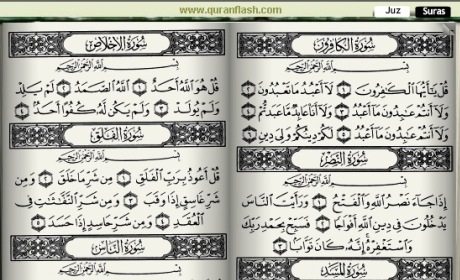 www.quranflash.com
Juz
Suras
سُورَةُ الكَافِرُونَ
بِسْمِ ٱللَّهِ ٱلرَّحْمَٰنِ ٱلرَّحِيمِ
قُلْ يَٰٓأَيُّهَا ٱلْكَٰفِرُونَ ١ لَآ أَعْبُدُ مَا تَعْبُدُونَ ٢
وَلَآ أَنتُمْ عَٰبِدُونَ مَآ أَعْبُدُ ٣ وَلَآ أَنَا۠ عَابِدٌ مَّا عَبَدتُّمْ ٤
وَلَآ أَنتُمْ عَٰبِدُونَ مَآ أَعْبُدُ ٥ لَكُمْ دِينُكُمْ وَلِىَ دِينِ ٦
سُورَةُ النَّصْرِ
بِسْمِ ٱللَّهِ ٱلرَّحْمَٰنِ ٱلرَّحِيمِ
إِذَا جَآءَ نَصْرُ ٱللَّهِ وَٱلْفَتْحُ ١ وَرَأَيْتَ ٱلنَّاسَ
يَدْخُلُونَ فِى دِينِ ٱللَّهِ أَفْوَاجًا ٢ فَسَبِّحْ بِحَمْدِ رَبِّكَ
وَٱسْتَغْفِرْهُ إِنَّهُۥ كَانَ تَوَّابًۢا ٣
سُورَةُ المَسَدِ
سُورَةُ الإِخْلَاصِ
بِسْمِ ٱللَّهِ ٱلرَّحْمَٰنِ ٱلرَّحِيمِ
قُلْ هُوَ ٱللَّهُ أَحَدٌ ١ ٱللَّهُ ٱلصَّمَدُ ٢ لَمْ يَلِدْ
وَلَمْ يُولَدْ ٣ وَلَمْ يَكُن لَّهُۥ كُفُوًا أَحَدٌۢ ٤
سُورَةُ الفَلَقِ
بِسْمِ ٱللَّهِ ٱلرَّحْمَٰنِ ٱلرَّحِيمِ
قُلْ أَعُوذُ بِرَبِّ ٱلْفَلَقِ ١ مِن شَرِّ مَا خَلَقَ ٢ وَمِن
شَرِّ غَاسِقٍ إِذَا وَقَبَ ٣ وَمِن شَرِّ ٱلنَّفَّٰثَٰتِ فِى
ٱلْعُقَدِ ٤ وَمِن شَرِّ حَاسِدٍ إِذَا حَسَدَ ٥
سُورَةُ النَّاسِ